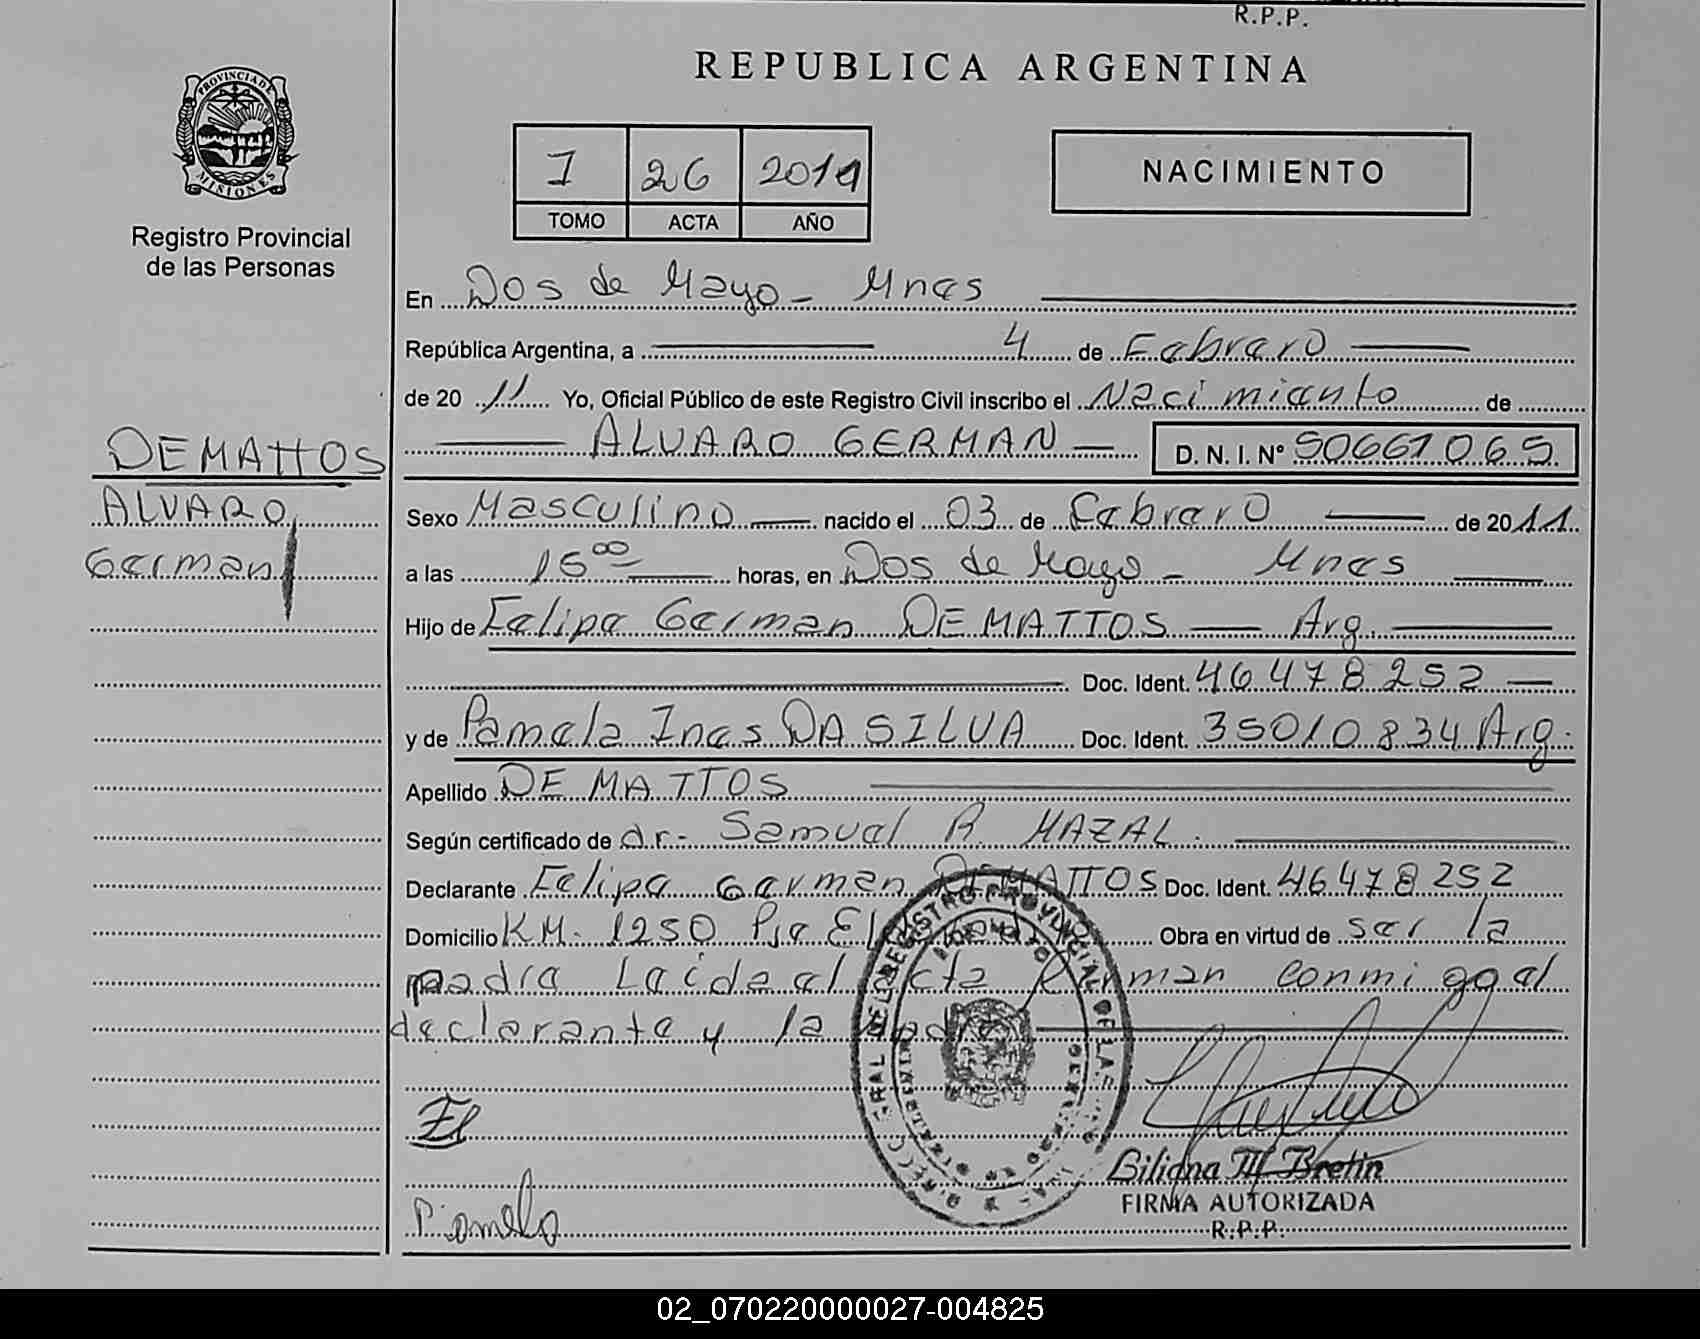 R.P.P.
REPUBLICA ARGENTINA
PROVINCIA DE
MISIONES
Registro Provincial
de las Personas
I 26 2011
TOMO ACTA AÑO
NACIMIENTO
En Dos de Mayo - Mnes
República Argentina, a 4 de Febrero
de 20 11 Yo, Oficial Público de este Registro Civil inscribo el Nacimiento de
ALVARO GERMAN D. N. I. Nº 50661065
DEMATTOS
ALVARO
German
Sexo Masculino nacido el 03 de Febrero de 2011
a las 15 00 horas, en Dos de Mayo - Mnes
Hijo de Felipe German DEMATTOS Arg.
Doc. Ident. 46478252
y de Pamela Ines DA SILVA Doc. Ident. 35010834 Arg.
Apellido DE MATTOS
Según certificado de dr. Samuel R. MAZAL.
Declarante Felipe German DEMATTOS Doc. Ident. 46478252
Domicilio KM. 1250 Pje El Obra en virtud de ser la
padre Leida el acta firman conmigo el
declarante y la
Pamela
Liliana M. Bretin
FIRMA AUTORIZADA
R.P.P.
02_070220000027-004825